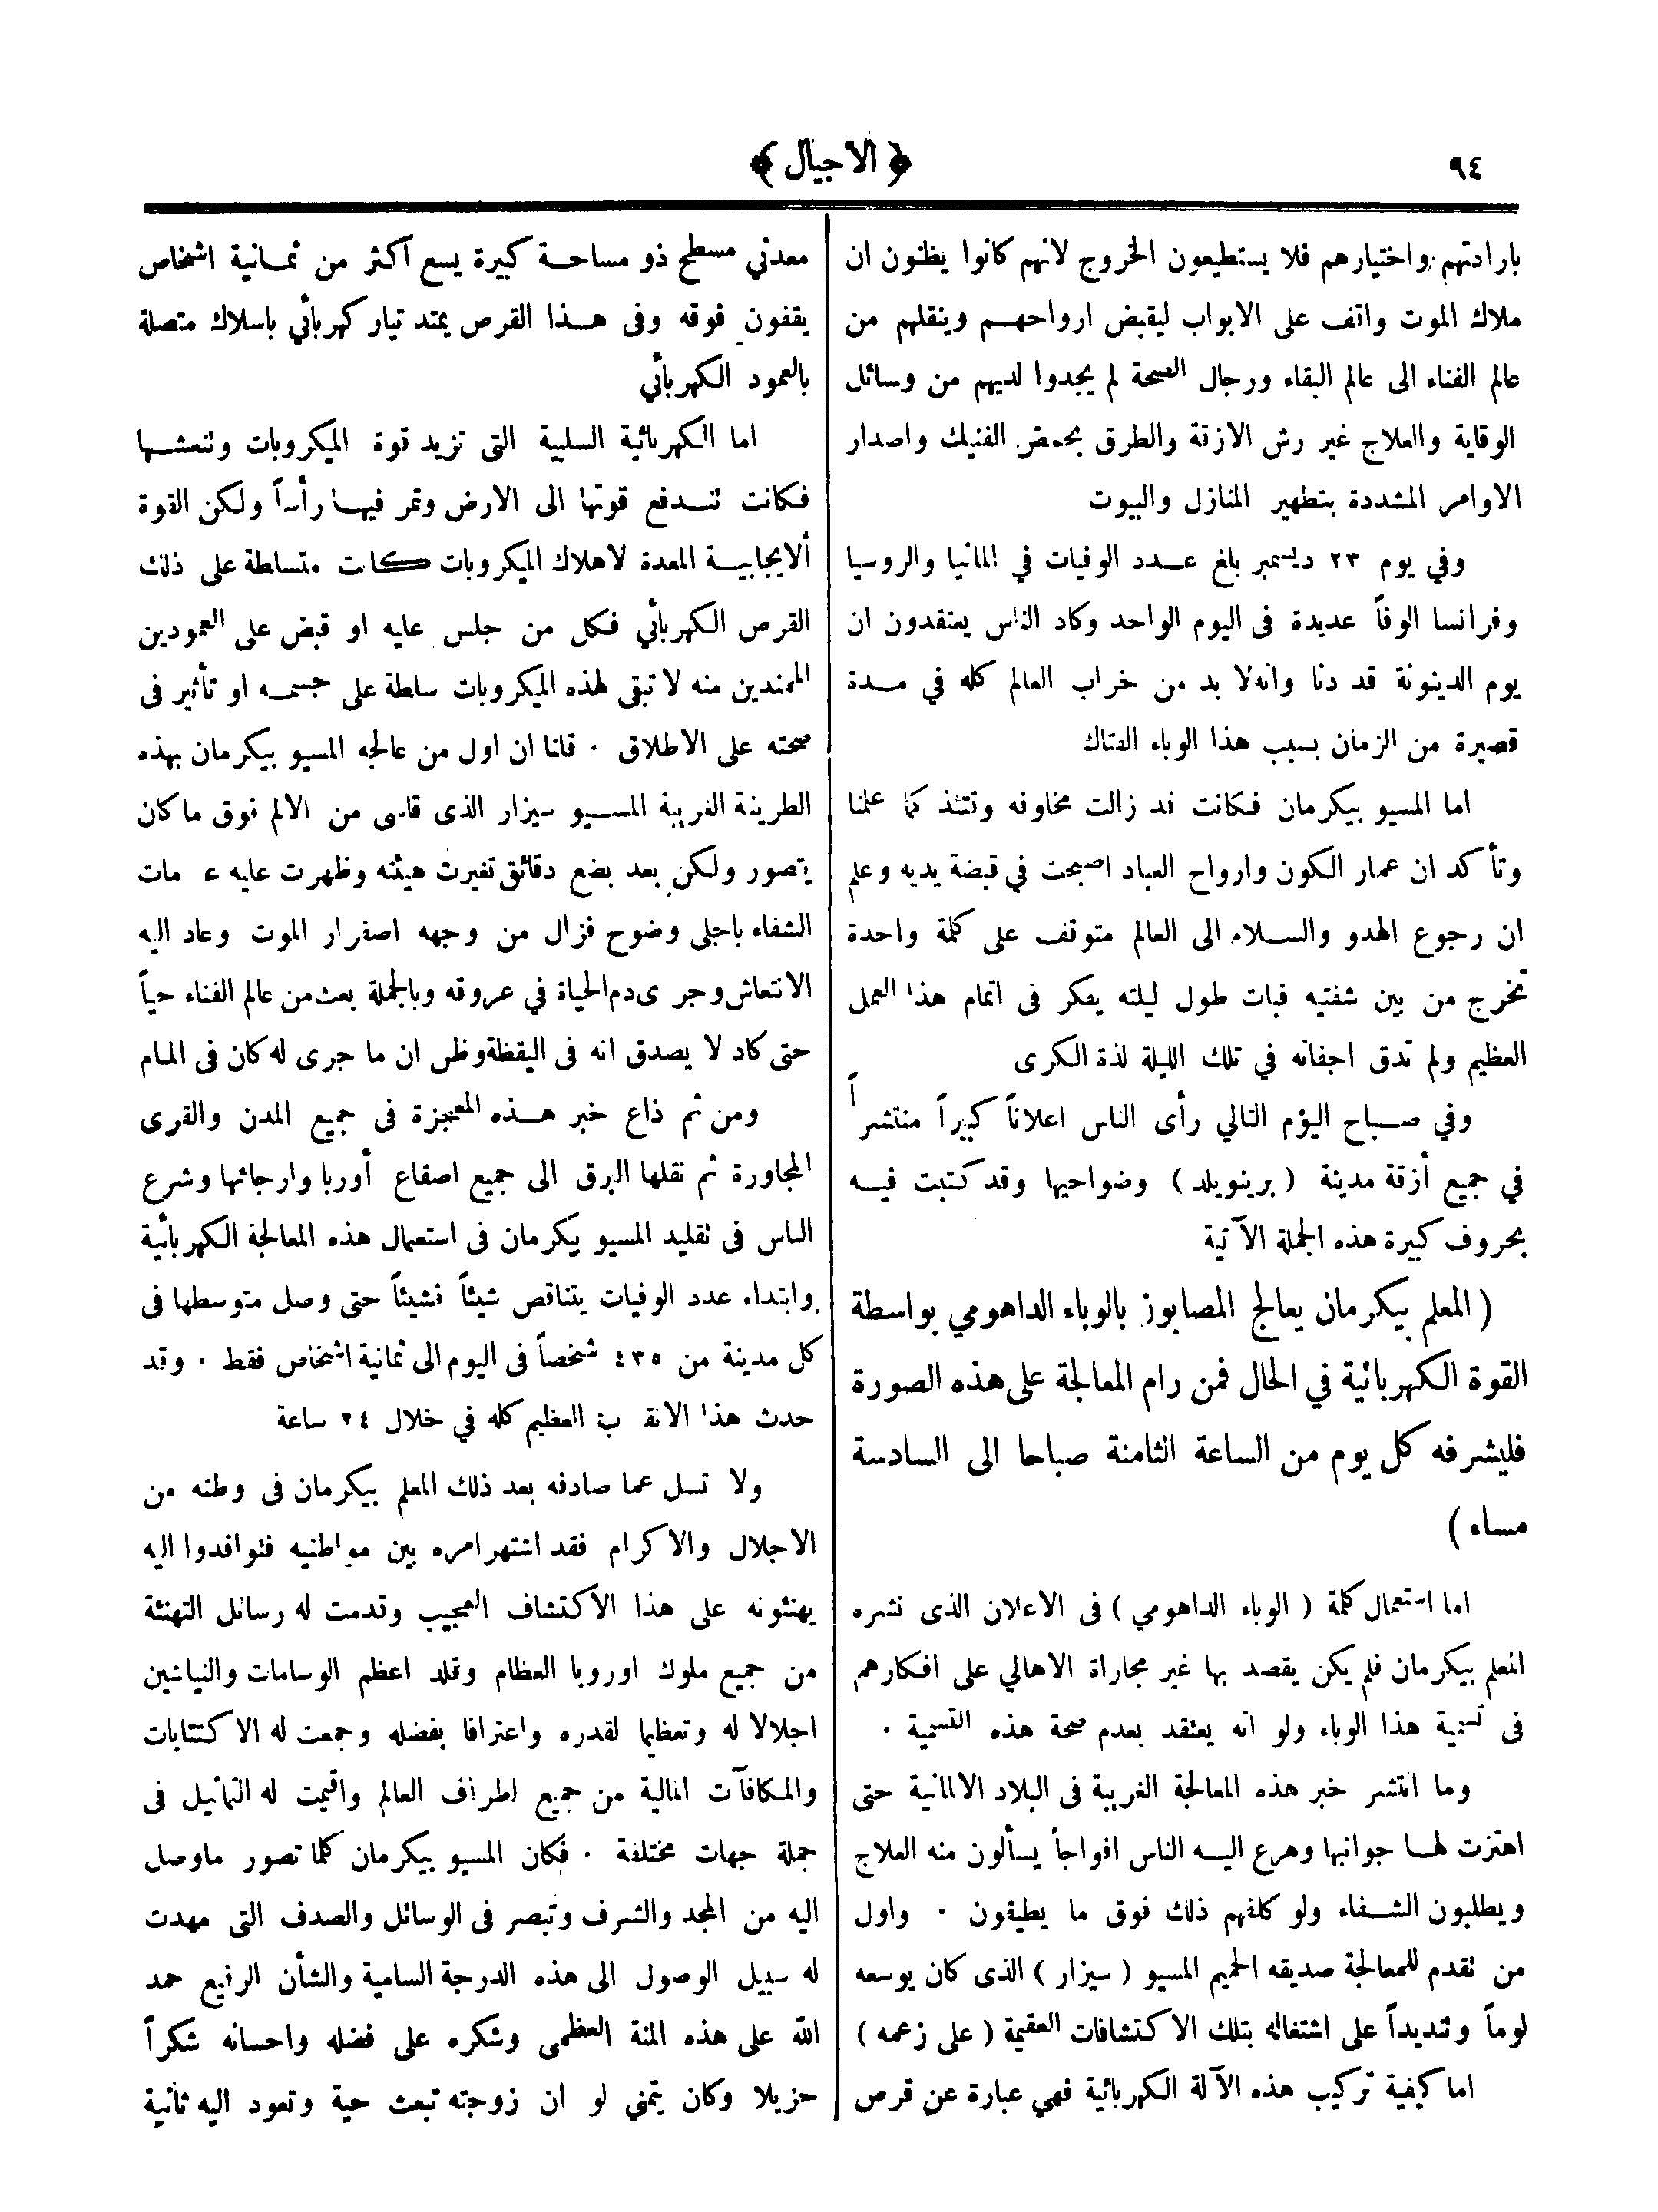 ٩٤
﴿ الاجيال ﴾
بارادتهم واختيارهم فلا يستطيعون الخروج لانهم كانوا يظنون ان
ملاك الموت واقف على الابواب ليقبض ارواحهم وينقلهم من
عالم الفناء الى عالم البقاء ورجال الصحة لم يجدوا لديهم من وسائل
الوقاية والعلاج غير رش الازقة والطرق بحمض الفنيك واصدار
الاوامر المشددة بتطهير المنازل والبيوت
وفي يوم ٢٣ ديسمبر بلغ عدد الوفيات في المانيا والروسيا
وفرانسا الوفاً عديدة فى اليوم الواحد وكاد الناس يعتقدون ان
يوم الدينونة قد دنا وانه لا بد من خراب العالم كله في مدة
قصيرة من الزمان بسبب هذا الوباء الفتاك
اما المسيو بيكرمان فكانت قد زالت مخاوفه وقتئذ كما علمنا
وتأكد ان عمار الكون وارواح العباد اصبحت في قبضة يديه وعلم
ان رجوع الهدو والسلام الى العالم متوقف على كلمة واحدة
تخرج من بين شفتيه فبات طول ليلته يفكر فى اتمام هذا العمل
العظيم ولم تدق اجفانه في تلك الليلة لذة الكرى
وفي صباح اليؤم التالي رأى الناس اعلاناً كبيراً منتشراً
في جميع أزقة مدينة ( برينويلد ) وضواحيها وقد كتبت فيه
بحروف كبيرة هذه الجملة الآتية
( المعلم بيكرمان يعالج المصابوز بالوباء الداهومي بواسطة
القوة الكهربائية في الحال فمن رام المعالجة على هذه الصورة
فليشرفه كل يوم من الساعة الثامنة صباحا الى السادسة
مساء )
اما استعمال كلمة ( الوباء الداهومي ) فى الاعلان الذى نشره
المعلم بيكرمان فلم يكن يقصد بها غير مجاراة الاهالي على افكارهم
فى تسمية هذا الوباء ولو انه يعتقد بعدم صحة هذه التسمية .
وما انتشر خبر هذه المعالجة الغريبة فى البلاد الالمانية حتى
اهتزت لها جوانبها وهرع اليه الناس افواجاً يسألون منه العلاج
ويطلبون الشفاء ولو كلفهم ذلك فوق ما يطيقون . واول
من تقدم للمعالجة صديقه الحميم المسيو ( سيزار ) الذى كان يوسعه
لوماً وتنديداً على اشتغاله بتلك الاكتشافات العقيمة ( على زعمه )
اما كيفية تركيب هذه الآلة الكهربائية فهي عبارة عن قرص
معدني مسطح ذو مساحة كبيرة يسع اكثر من ثمانية اشخاص
يقفون فوقه وفى هذا القرص يمتد تيار كهربأئي باسلاك متصلة
بالعمود الكهربأئي
اما الكهربائية السلبية التى تزيد قوة الميكروبات وتنعشها
فكانت تندفع قوتها الى الارض وتمر فيها رأساً ولكن القوة
ألايجابية المعدة لاهلاك الميكروبات كانت متسلطة على ذلك
القرص الكهربأئي فكل من جلس عليه او قبض على العمودين
الممتدين منه لا تبقى لهذه الميكروبات سلطة على جسمه او تأثير فى
صحته على الاطلاق . قلنا ان اول من عالجه المسيو بيكرمان بهذه
الطريقة الغريبة المسيو سيزار الذى قاسى من الالم فوق ما كان
يتصور ولكن بعد بضع دقائق تغيرت هيئته وظهرت عليه ع مات
الشفاء باجلى وضوح فزال من وجهه اصفرار الموت وعاد اليه
الانتعاش وجرى دم الحياة في عروقه وبالجملة بعث من عالم الفناء حياً
حتى كاد لا يصدق انه فى اليقظة وظن ان ما جرى له كان فى المنام
ومن ثم ذاع خبر هذه المعجزة فى جميع المدن والقرى
المجاورة ثم نقلها البرق الى جميع اصقاع أوربا وارجائها وشرع
الناس فى تقليد المسيو يكرمان فى استعمال هذه المعالجة الكهربأئية
وابتداء عدد الوفيات يتناقص شيئاً فشيئاً حتى وصل متوسطها فى
كل مدينة من ٤٣٥ شخصاً فى اليوم الى ثمانية اشخاص فقط . وقد
حدث هذا الانق ب العظيم كله في خلال ٢٤ ساعة
ولا تسل عما صادفه بعد ذلك المعلم بيكرمان فى وطنه من
الاجلال والاكرام فقد اشتهر امره بين مواطنيه فتوافدوا اليه
يهنئونه على هذا الاكتشاف العجيب وقدمت له رسائل التهنئة
من جميع ملوك اوروبا العظام وقلد اعظم الوسامات والنياشين
اجلالا له وتعظيما لقدره واعترافا بفضله وجمعت له الاكتتابات
والمكافآت المالية من جميع اطراف العالم واقيمت له التماثيل فى
جملة جهات مختلفة . فكان المسيو بيكرمان كلما تصور ماوصل
اليه من المجد والشرف وتبصر فى الوسائل والصدف التى مهدت
له سبيل الوصول الى هذه الدرجة السامية والشأن الرفيع حمد
الله على هذه المنة العظمى وشكره على فضله واحسانه شكراً
جزيلا وكان يتمني لو ان زوجته تبعث حية وتعود اليه ثانية